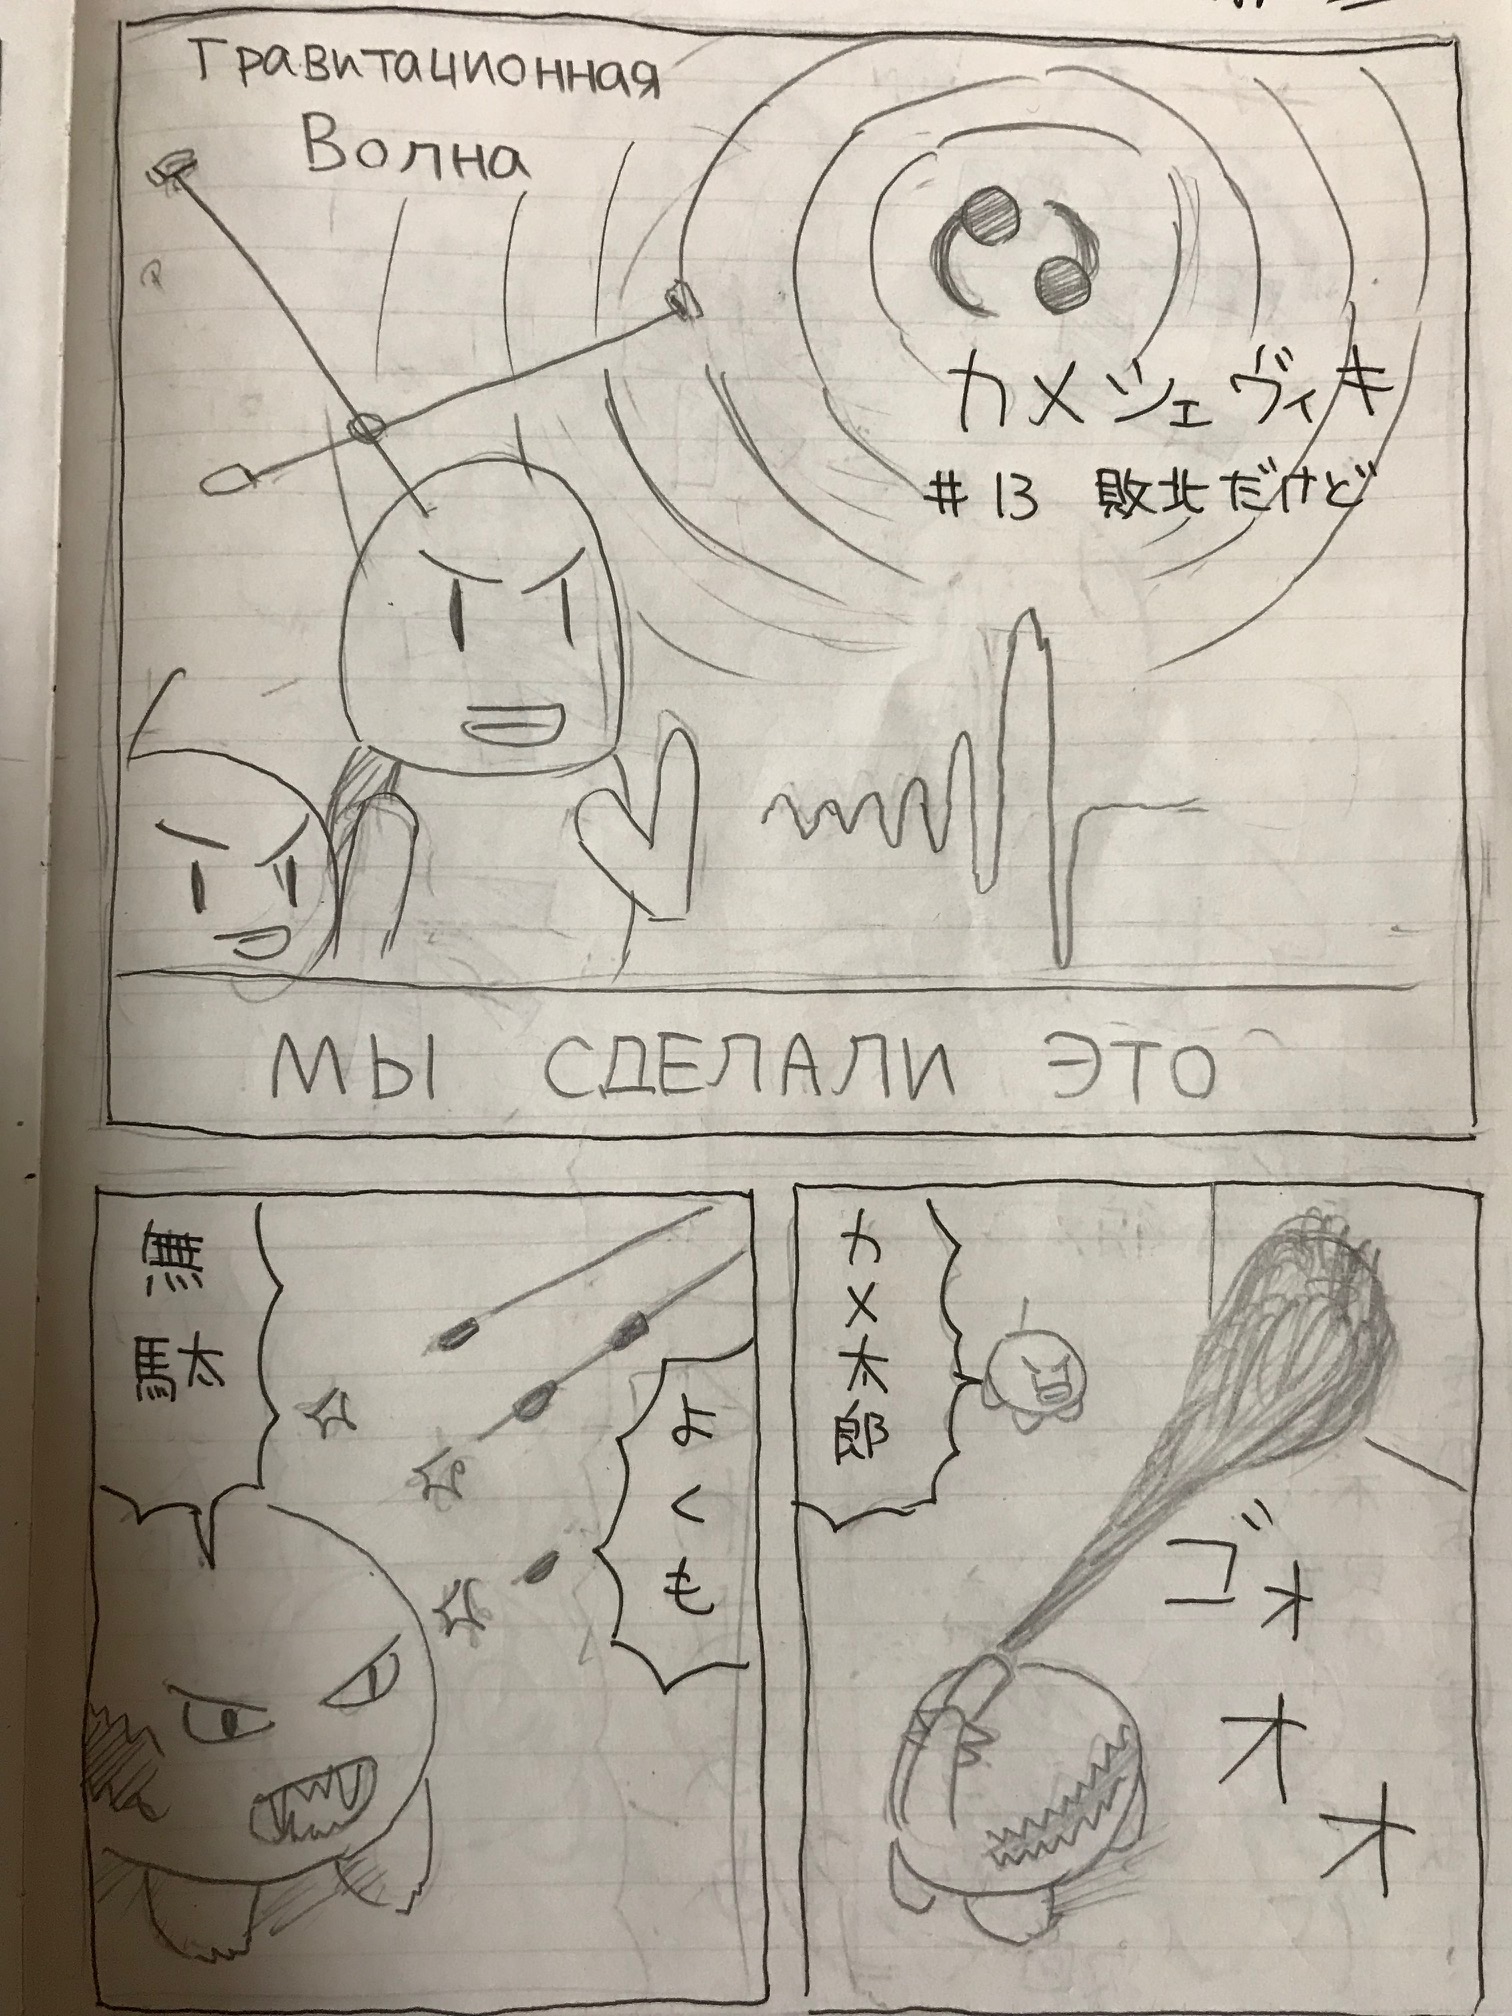 Гравитационная
Волна
カメシェヴィキ
#13 敗北だけど
МЫ СДЕЛАЛИ ЭТО
カメ太郎
ゴォオオ
よくも
無駄